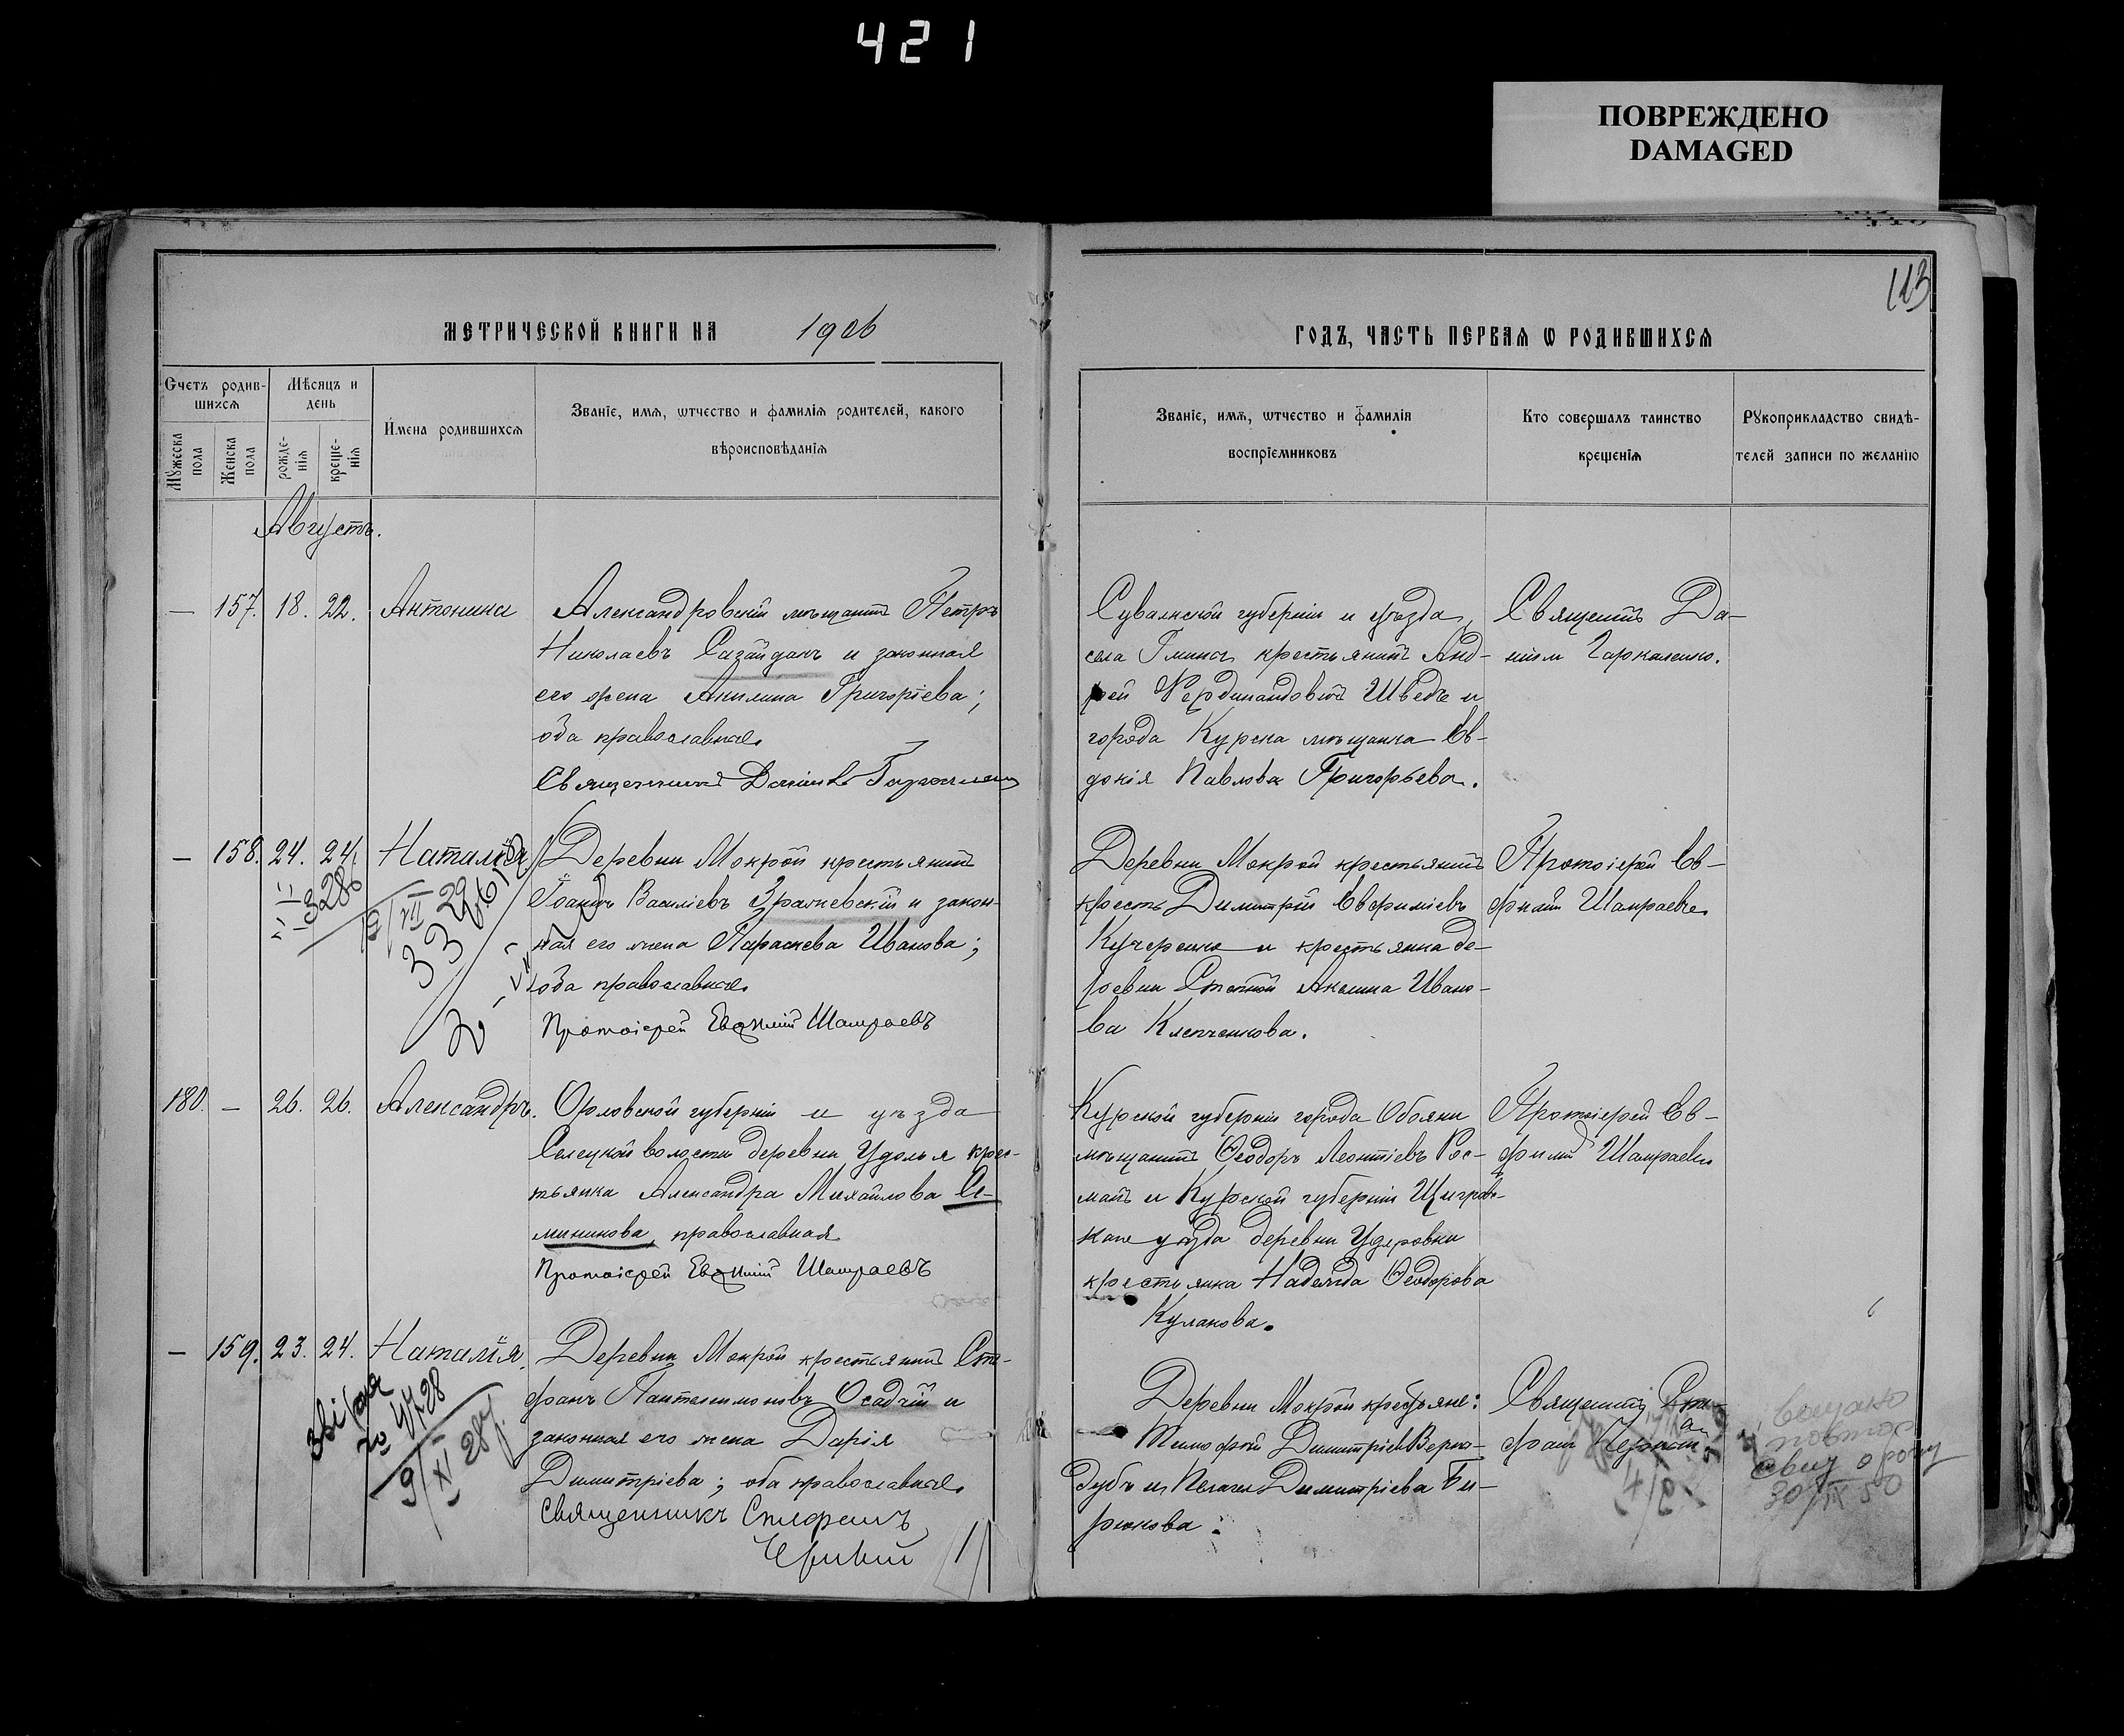 421
ПОВРЕЖДЕНО
DAMAGED
113
МЕТРИЧЕСКОЙ КНИГИ НА 1906
ГОДЪ, ЧАСТЬ ПЕРВАЯ Ѡ РОДИВШИХСЯ
Счетъ родив-
шихся
Мѣсяцъ и
день
Мꙋжеска
пола
Женска
пола
рожде-
нія
креще-
нія
Имена родившихся
Званіе, имя, ѡтчество и фамилія родителей, какого
вѣроисповѣданія
Званіе, имя, ѡтчество и фамилія
воспріемниковъ
Кто совершалъ таинство
крещенія
Рꙋкоприкладство свидѣ-
телей записи по желанію
Августъ.
— 157. 18. 22. Антонина
Александровскій мѣщанинъ Петръ
Николаевъ Сагайданъ и законная
его жена Акилина Григоріева;
оба православные
Священникъ Даніилъ
Сувалкской губерніи и уѣзда,
села Гмина крестьянинъ Анд-
рей Фердинандовичъ Шведъ и
города Курска мѣщанка Ев-
докія Павлова Григорьева.
Священникъ Да-
ніилъ Гаркаленко.
— 158. 24. 24. Наталія
328
Деревни Мокрой крестьянинъ
Іоаннъ Василіевъ Зрачевскій и закон-
ная его жена Параскева Иванова;
оба православные
Протоіерей Евѳимій Шамраевъ
Деревни Мокрой крестьянинъ
Димитрій Евфиміевъ
Кучеренко и крестьянка де-
ревни Степной Акилина Ивано-
ва Клепченкова.
Протоіерей Ев-
фимій Шамраевъ
180. — 26. 26. Александръ.
Орловской губерніи и уѣзда
Селецкой волости деревни Удолья крес-
тьянка Александра Михайлова Се-
минихова, православная
Протоіерей Евѳимій Шамраевъ
Курской губерніи города Обояни
мѣщанинъ Ѳеодоръ Леонтіевъ Рос-
манъ и Курской губерніи Щигров-
каго уѣзда деревни Удеровки
крестьянка Надежда Ѳеодорова
Кулакова.
Протоіерей Ев-
фимій Шамраевъ
— 159. 23. 24. Наталія.
9/XI 28
Деревни Мокрой крестьянинъ Сте-
фанъ Пантелеимоновъ Осадчій и
законная его жена Дарія
Димитріева; оба православные
Священникъ Стефанъ
Деревни Мокрой крестьяне:
Тимофей Димитріевъ Верно-
дубъ и Пелагея Димитріева Би-
рюкова.
Священникъ Сте-
фанъ
30/IX 50